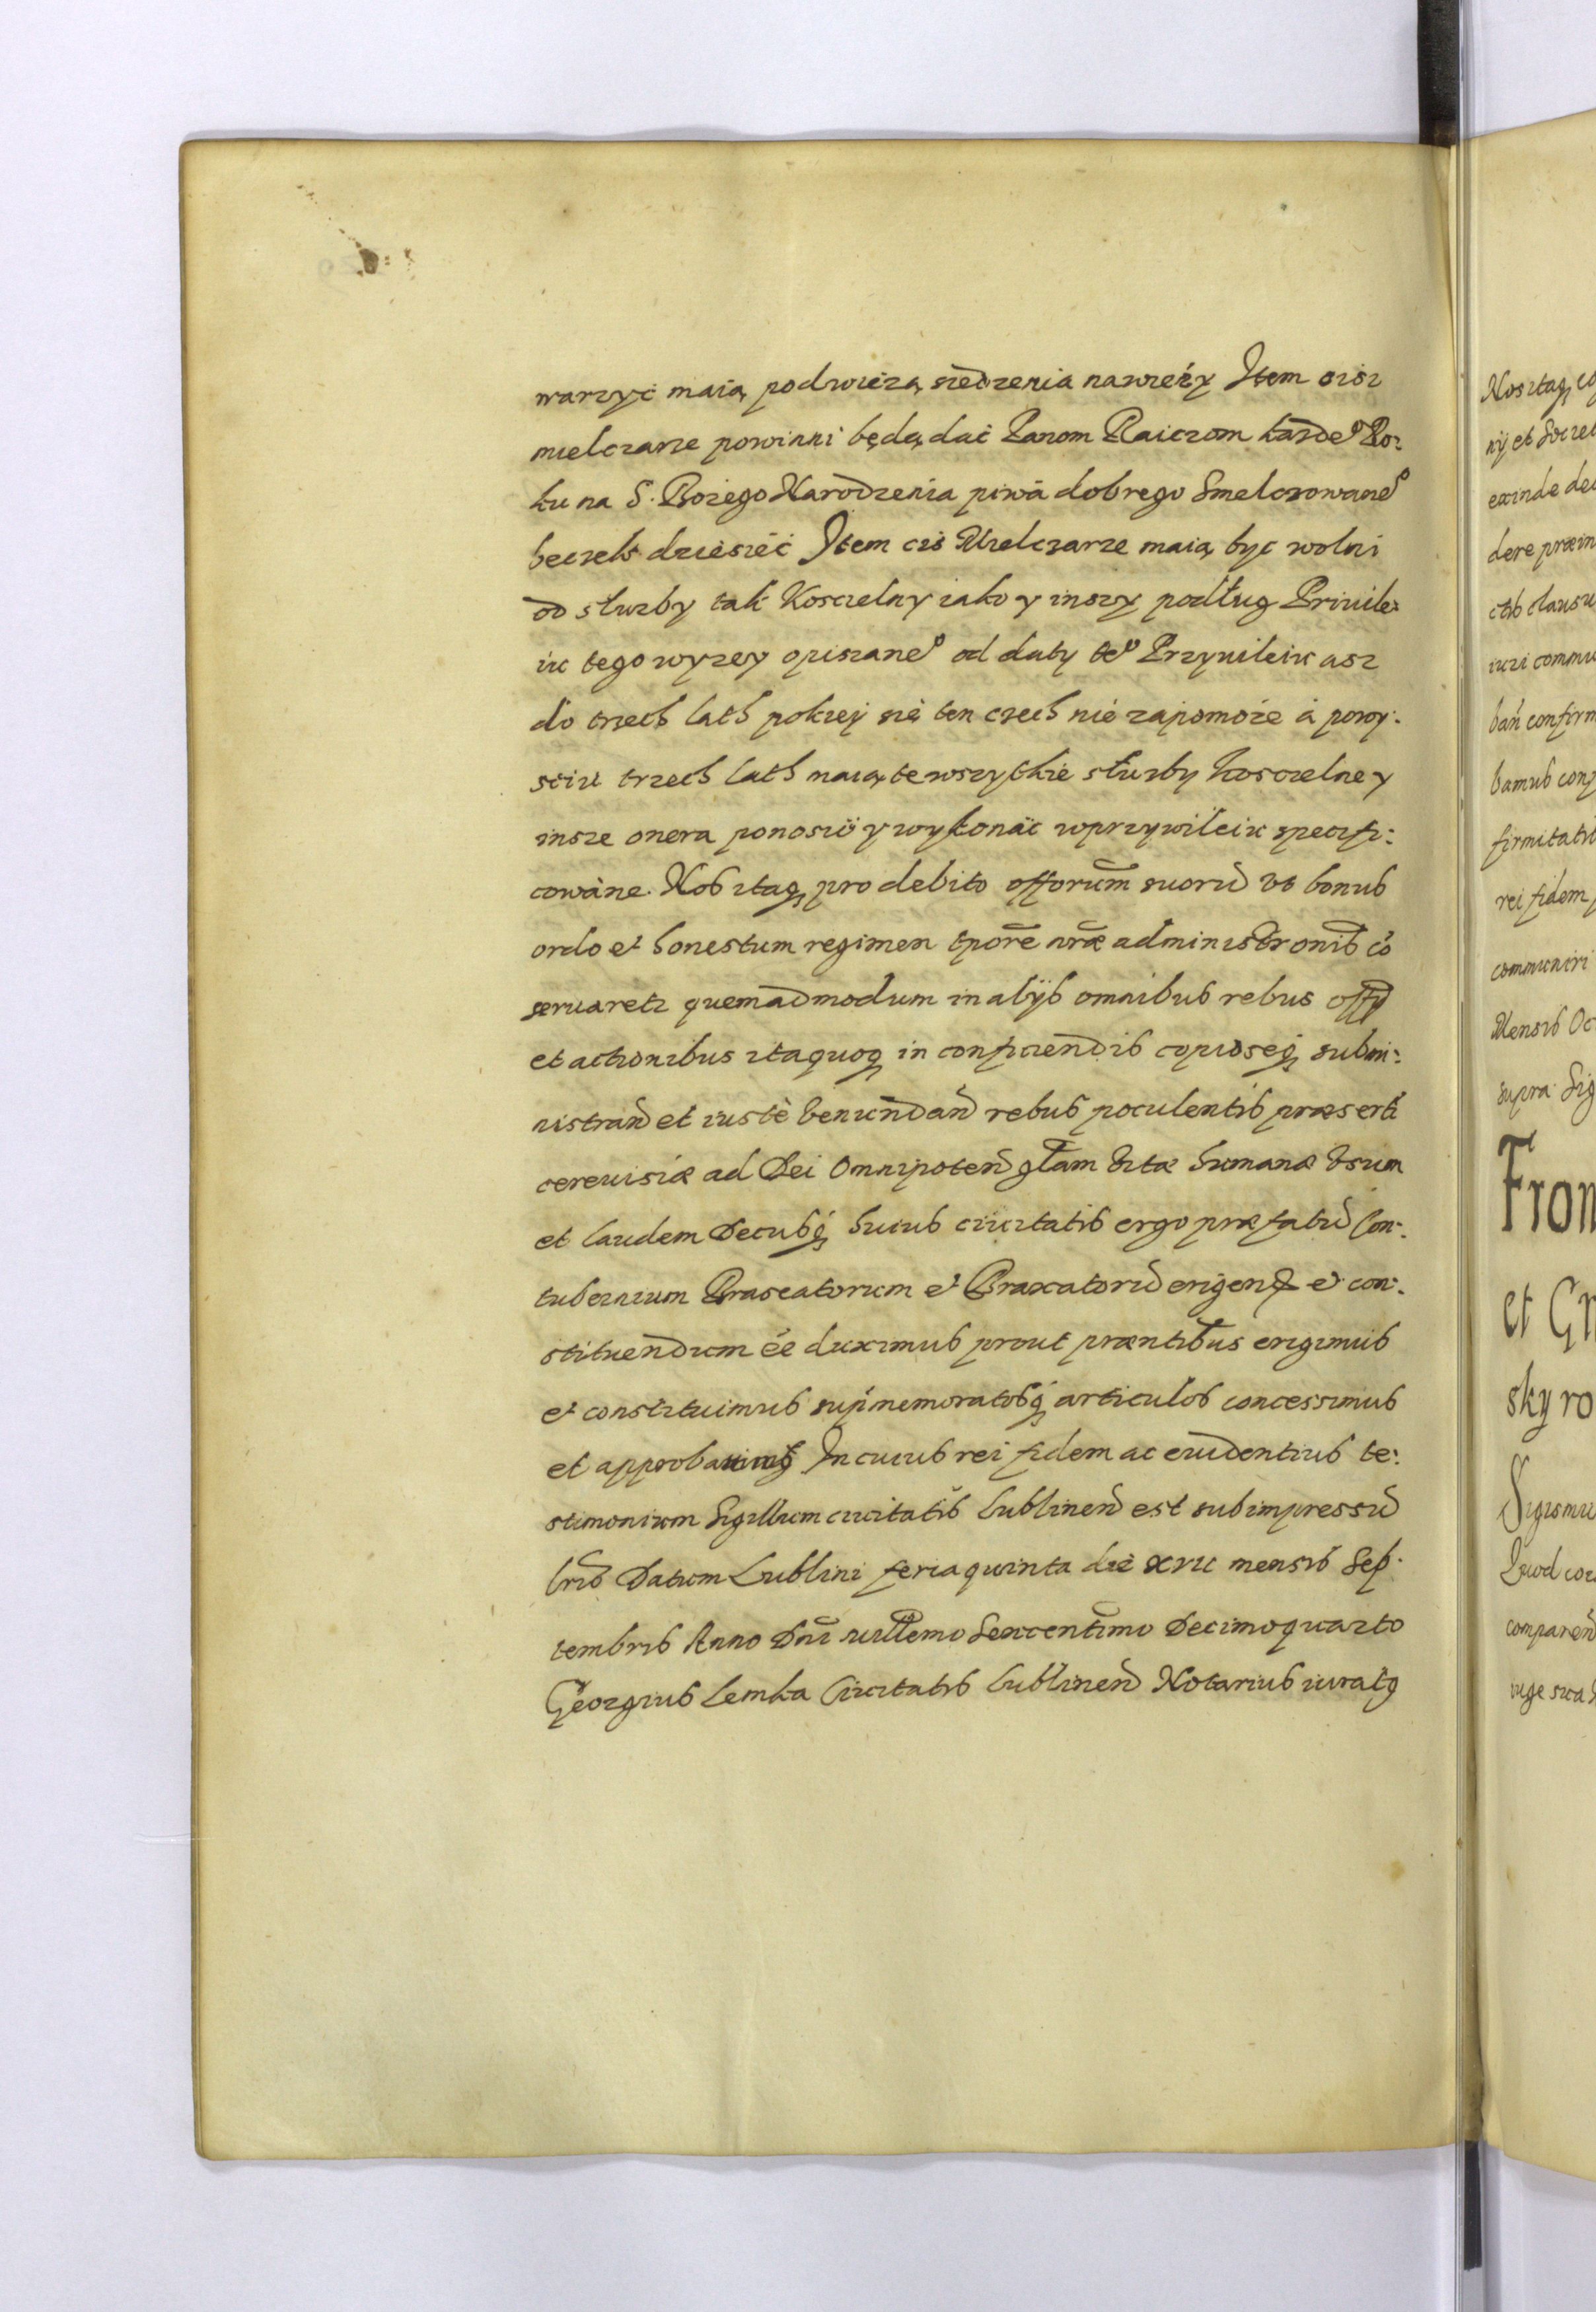 warzyć maią pod wieżą siedzenia nawieży Item cisz
mielczarze powinni będą dać Panom Raiczom kazde° Ro-
ku na S. Bożego Narodzenia piwa dobrego Smelczowane°
beczek dziesięć Item ciż Mielczarze maią być wolni
od służby tak Koscielny iako y inszy podług Priuile-
iu tego wyzey opisane° od daty te° Przywileiu asz
do trzech lath pokiey się ten czech nie zapomoże á powy-
sciu trzech lath maią te wszytkie służby koscielne y
insze onera ponosić y wykonać wprzywileiu specifi-
cowane. Nos itaq pro debito offorum suorū vt bonus
ordo et honestum regimen tpore nrae administronis cō
seruaretr quemadmodum in alijs omnibus rebus
et actionibus ita quoq in conficiendis copioseq submi-
nistrand et iustè venundand rebus poculentis praesertī
cereuisiae ad Dei Omnipoten glam vitae humanae vsum
et laudem Decusq huius ciuitatis ergo praefatū Con-
tubernium Braseatorum et Braxatorū erigend et con-
stituendum eē duximus prout praentibus erigimus
et constituimus supmemoratosq articulos concessimus
et approbauimq In cuius rei fidem ac euidentius te-
stimonium Sigillum ciuitatis Lublinen est subimpressū
Datum Lublini feria quinta die xvii mensis Sep-
tembris Anno Dni millemo Sexcentimo Decimoquarto
Georgius Lemka Ciuitatis Lublinen Notarius iuratq
Nos itaq co
nij et Societ
exinde de
dere praein
ctis clausu
iuri commu
ban confirm
bamus conf
firmitatis
rei fidem
communiri
Mensis Oc
supra Sig
From
et Gr
sky ro
Sigismu
Quod co
comparen